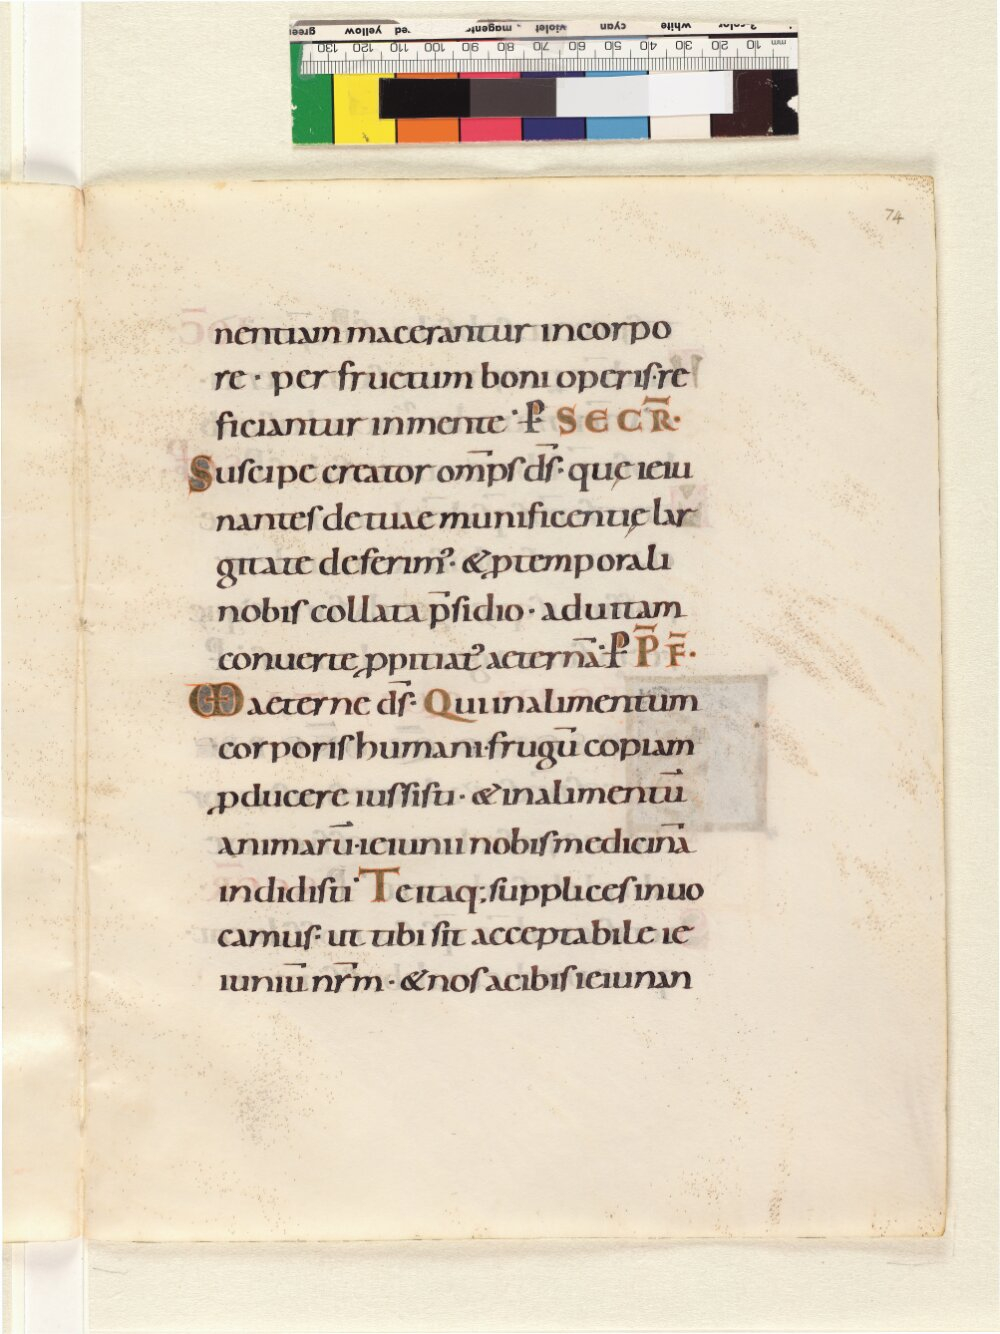 74
nentiam macerantur incorpo
re · per fructum boni operiſ· re
ficiantur inmente · ꝑ SECR̄·
Suſcipe creator om̄pſ d̄ſ· quę ieiu
nanteſ de tuae munificentię lar
gitate deferim᾽· & ꝑ temporali
nobiſ collata p̄ſidio · ad uitam
conuerte ꝓpitiat᾽ aeternā· ꝑ P̄ F̄·
VD aeterne d̄ſ· Qui inalimentum
corporiſ humani· frugū copiam
ꝓducere iuſſiſti · & inalimentū
animarū· ieiunii nobiſ medicinā
indidiſti· Te itaq; ſuppliceſ inuo
camuſ· ut tibi ſit acceptabile ie
iuniū nr̄m · & noſ acibiſ ieiunan